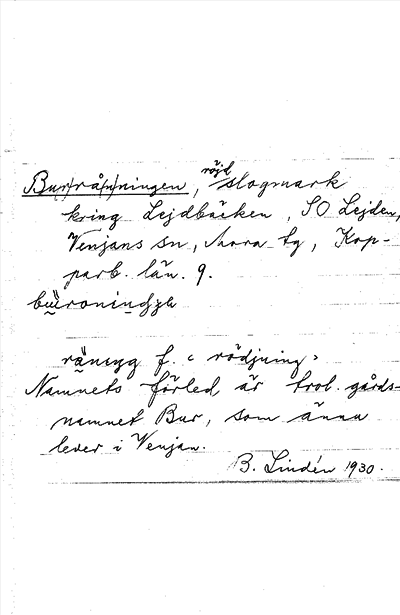 Bur(rå(n)ningen, röjd slogmark
kring Lejdbäcken, SO Lejden,
Venjans sn, Mora tg, Kop-
parb. län. 9.
f. "rödjning"
Namnets förled är trol. gårds-
namnet Bur, som ännu
lever i Venjan.
B. Lindén 1930.